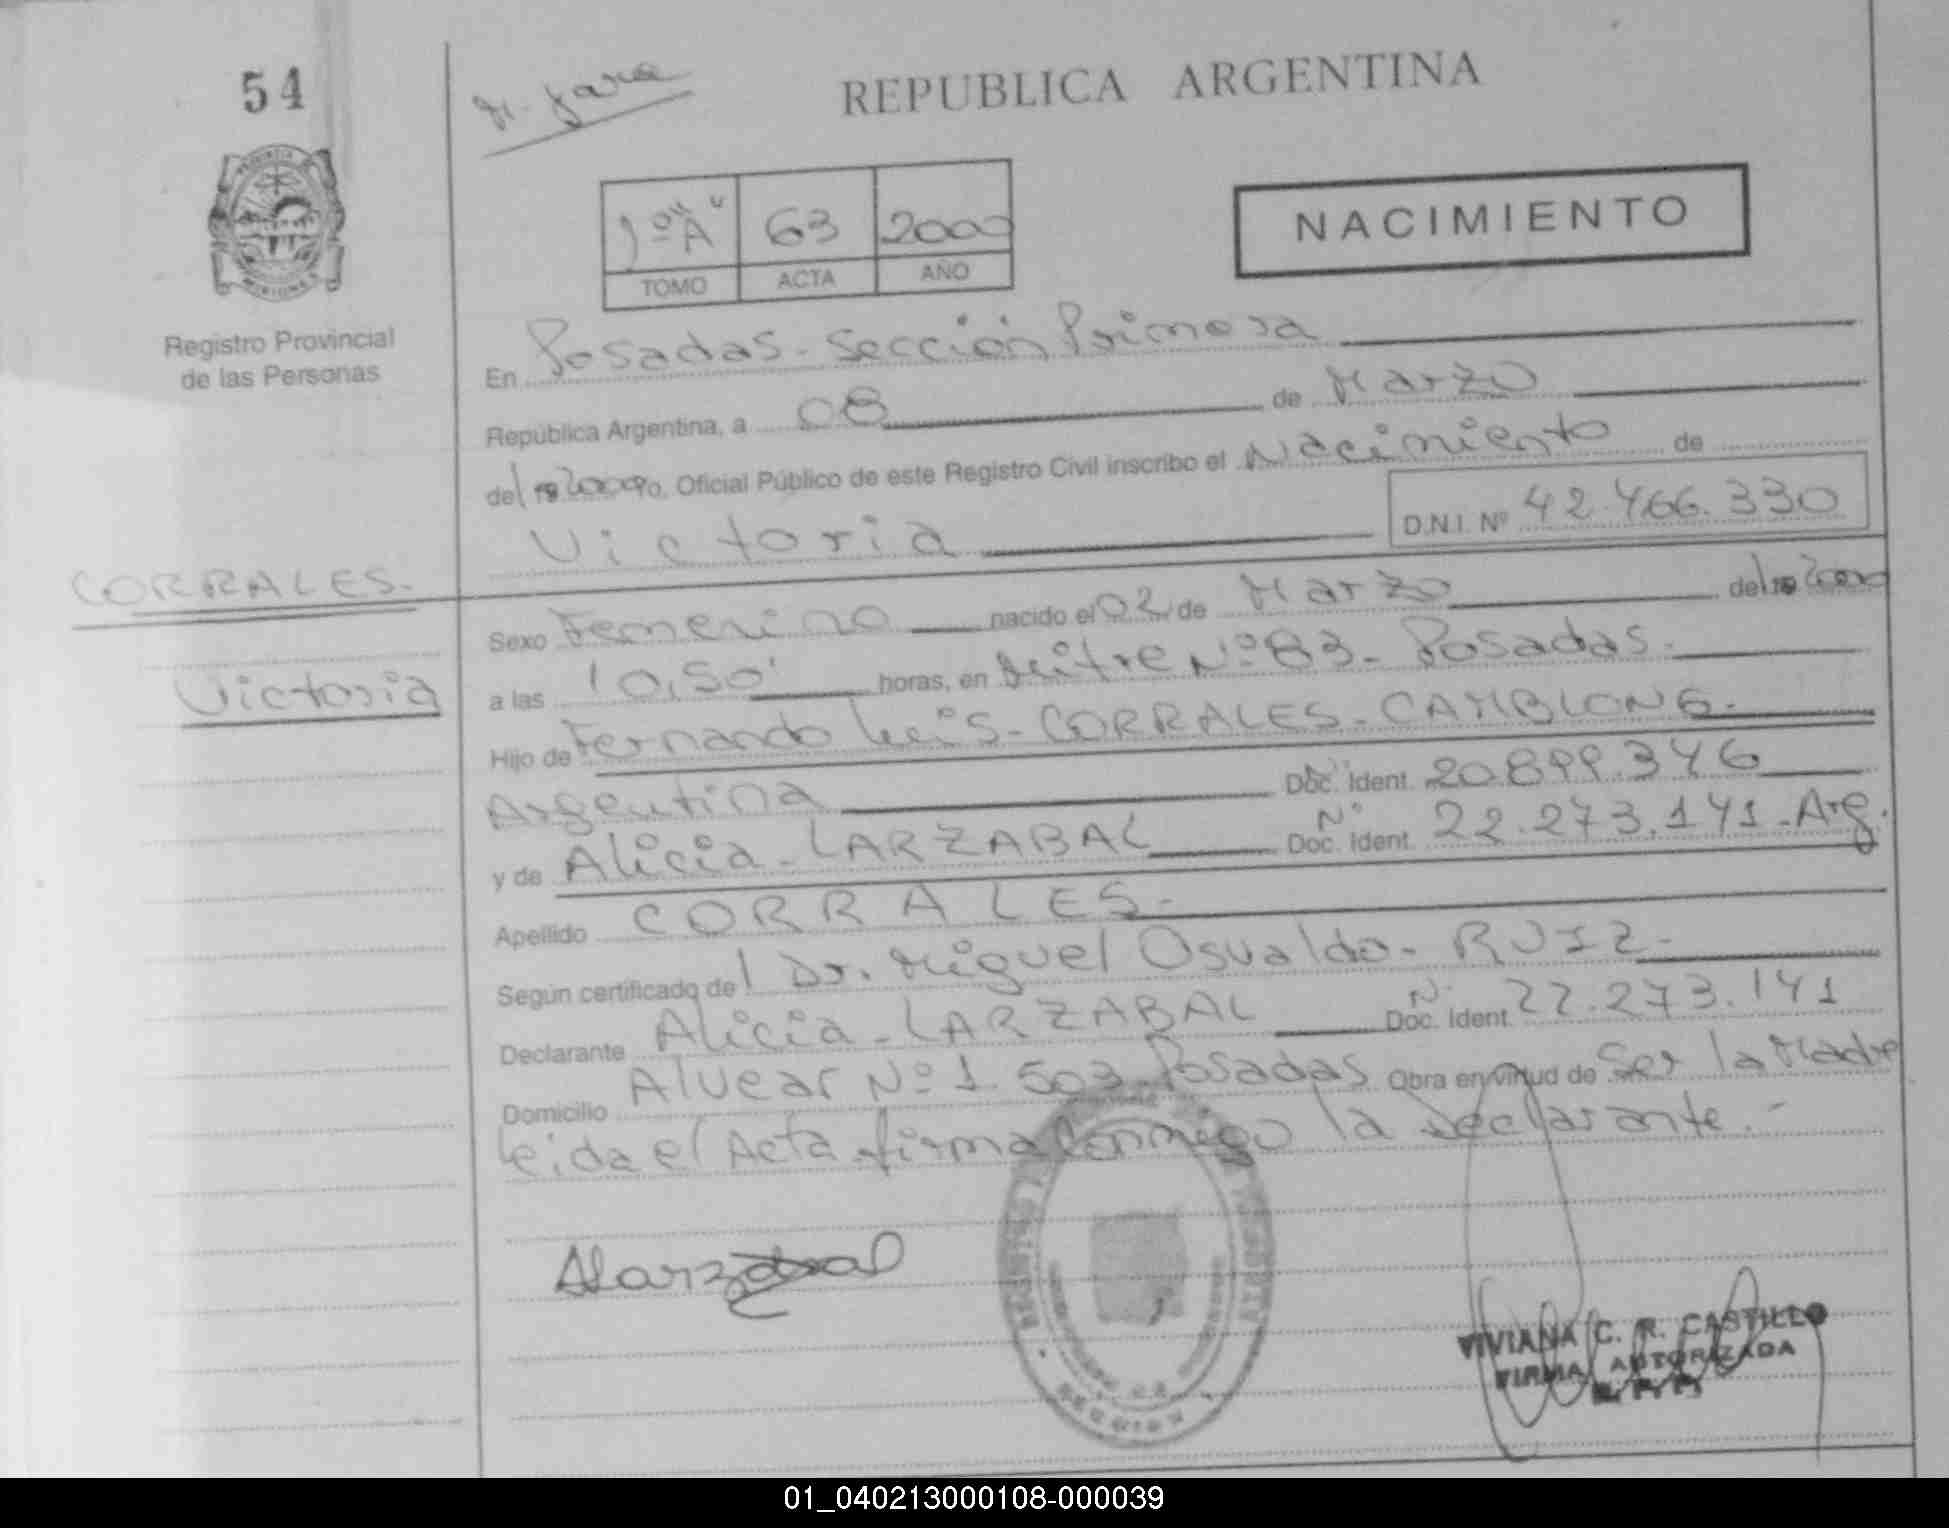 54
REPUBLICA ARGENTINA
1º "A" 63 2000
TOMO ACTA AÑO
NACIMIENTO
Registro Provincial
de las Personas
En Posadas - Sección Primera
República Argentina, a 08 de Marzo
del 2000 yo, Oficial Público de este Registro Civil inscribo el Nacimiento de
Victoria
D.N.I. Nº 42.466.330
CORRALES.
Victoria
Sexo Femenino nacido el 02 de Marzo del 2000
a las 10,50' horas, en Mitre Nº 83 - Posadas.
Hijo de Fernando Luis - CORRALES - CAMBLONG.
Argentina Doc. Ident. Nº 20.899.346
y de Alicia - LARZABAL Doc. Ident. Nº 22.273.141 - Arg.
Apellido CORRALES.
Según certificado del Dr. Miguel Osvaldo - RUIZ -
Declarante Alicia - LARZABAL Doc. Ident. Nº 22.273.141
Domicilio Alvear Nº 1.503 - Posadas Obra en virtud de Ser la Madre
Leida el Acta firma Conmigo la Declarante. -
VIVIANA C. R. CASTILLO
FIRMA AUTORIZADA
01_040213000108-000039